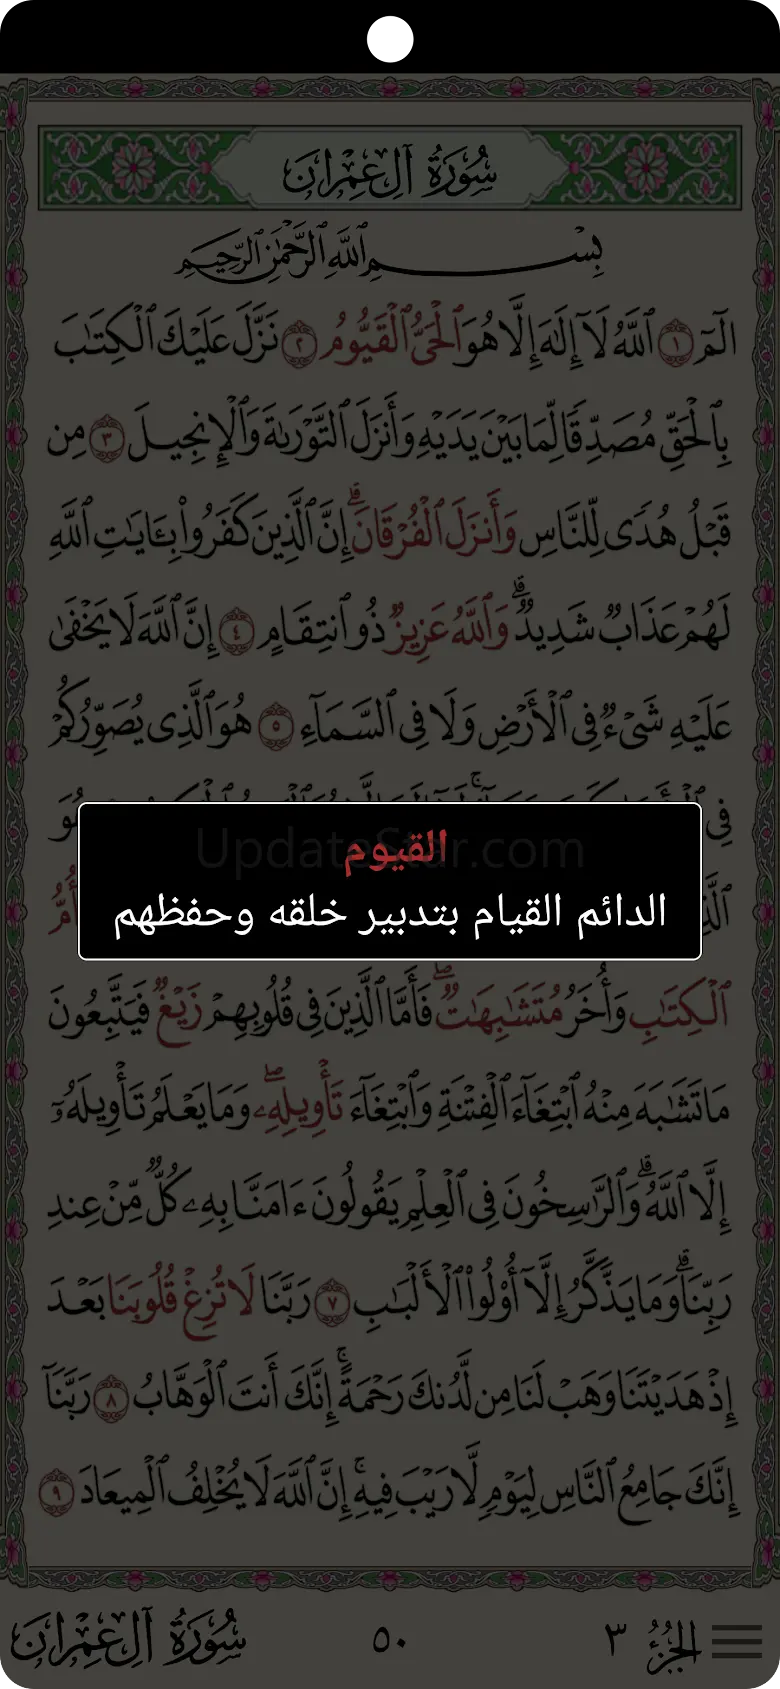 سُورَةُ آلِ عِمْرَانَ
بِسْمِ ٱللَّهِ ٱلرَّحْمَٰنِ ٱلرَّحِيمِ
الٓمٓ ١ ٱللَّهُ لَآ إِلَٰهَ إِلَّا هُوَ ٱلْحَىُّ ٱلْقَيُّومُ ٢ نَزَّلَ عَلَيْكَ ٱلْكِتَٰبَ
بِٱلْحَقِّ مُصَدِّقًا لِّمَا بَيْنَ يَدَيْهِ وَأَنزَلَ ٱلتَّوْرَىٰةَ وَٱلْإِنجِيلَ ٣ مِن
قَبْلُ هُدًى لِّلنَّاسِ وَأَنزَلَ ٱلْفُرْقَانَ ۗ إِنَّ ٱلَّذِينَ كَفَرُوا۟ بِـَٔايَٰتِ ٱللَّهِ
لَهُمْ عَذَابٌ شَدِيدٌ ۗ وَٱللَّهُ عَزِيزٌ ذُو ٱنتِقَامٍ ٤ إِنَّ ٱللَّهَ لَا يَخْفَىٰ
عَلَيْهِ شَىْءٌ فِى ٱلْأَرْضِ وَلَا فِى ٱلسَّمَآءِ ٥ هُوَ ٱلَّذِى يُصَوِّرُكُمْ
فِى
UpdateStar.com
القيوم
الدائم القيام بتدبير خلقه وحفظهم
أُمُّ
ٱلْكِتَٰبِ وَأُخَرُ مُتَشَٰبِهَٰتٌ ۖ فَأَمَّا ٱلَّذِينَ فِى قُلُوبِهِمْ زَيْغٌ فَيَتَّبِعُونَ
مَا تَشَٰبَهَ مِنْهُ ٱبْتِغَآءَ ٱلْفِتْنَةِ وَٱبْتِغَآءَ تَأْوِيلِهِۦ ۖ وَمَا يَعْلَمُ تَأْوِيلَهُۥٓ
إِلَّا ٱللَّهُ ۗ وَٱلرَّٰسِخُونَ فِى ٱلْعِلْمِ يَقُولُونَ ءَامَنَّا بِهِۦ كُلٌّ مِّنْ عِندِ
رَبِّنَا ۗ وَمَا يَذَّكَّرُ إِلَّآ أُو۟لُوا۟ ٱلْأَلْبَٰبِ ٧ رَبَّنَا لَا تُزِغْ قُلُوبَنَا بَعْدَ
إِذْ هَدَيْتَنَا وَهَبْ لَنَا مِن لَّدُنكَ رَحْمَةً ۚ إِنَّكَ أَنتَ ٱلْوَهَّابُ ٨ رَبَّنَآ
إِنَّكَ جَامِعُ ٱلنَّاسِ لِيَوْمٍ لَّا رَيْبَ فِيهِ ۚ إِنَّ ٱللَّهَ لَا يُخْلِفُ ٱلْمِيعَادَ ٩
الجُزْءُ ٣ ٥٠ سُورَةُ آلِ عِمْرَانَ